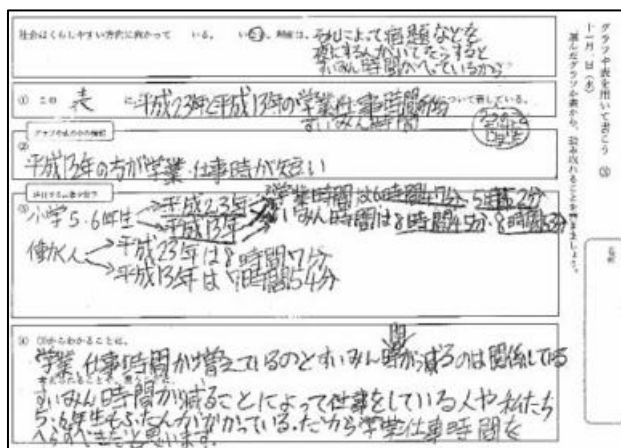 グラフや表を用いて書こう ③
十一月 日(水)
選んだグラフや表から、読み取れることを書きましょう。
名前
社会はくらしやすい方向に向かって いる。 いない。理由は、
それによって宿題などを
夜にする人がいてそうすると
すいみん時間がへっているから
① この 表 は、平成23年と平成13年の学業、仕事時間 について表している。
すいみん時間
②
平成13年の方が学業・仕事時が短い
③
小学5・6年生 平成23年 学業時間は6時間47分・5時間52分
平成13年 すいみん時間は8時間45分・8時間53分
働く人 平成23年は8時間7分
平成13年は7時間54分
④ ③からわかることは、
学業、仕事時間が増えているのとすいみん時間が減るのは関係している
すいみん時間が減ることによって仕事をしている人や私たち
5・6年生もふたんがかかっている。だから学業仕事時間を
へらすべきだと思います。